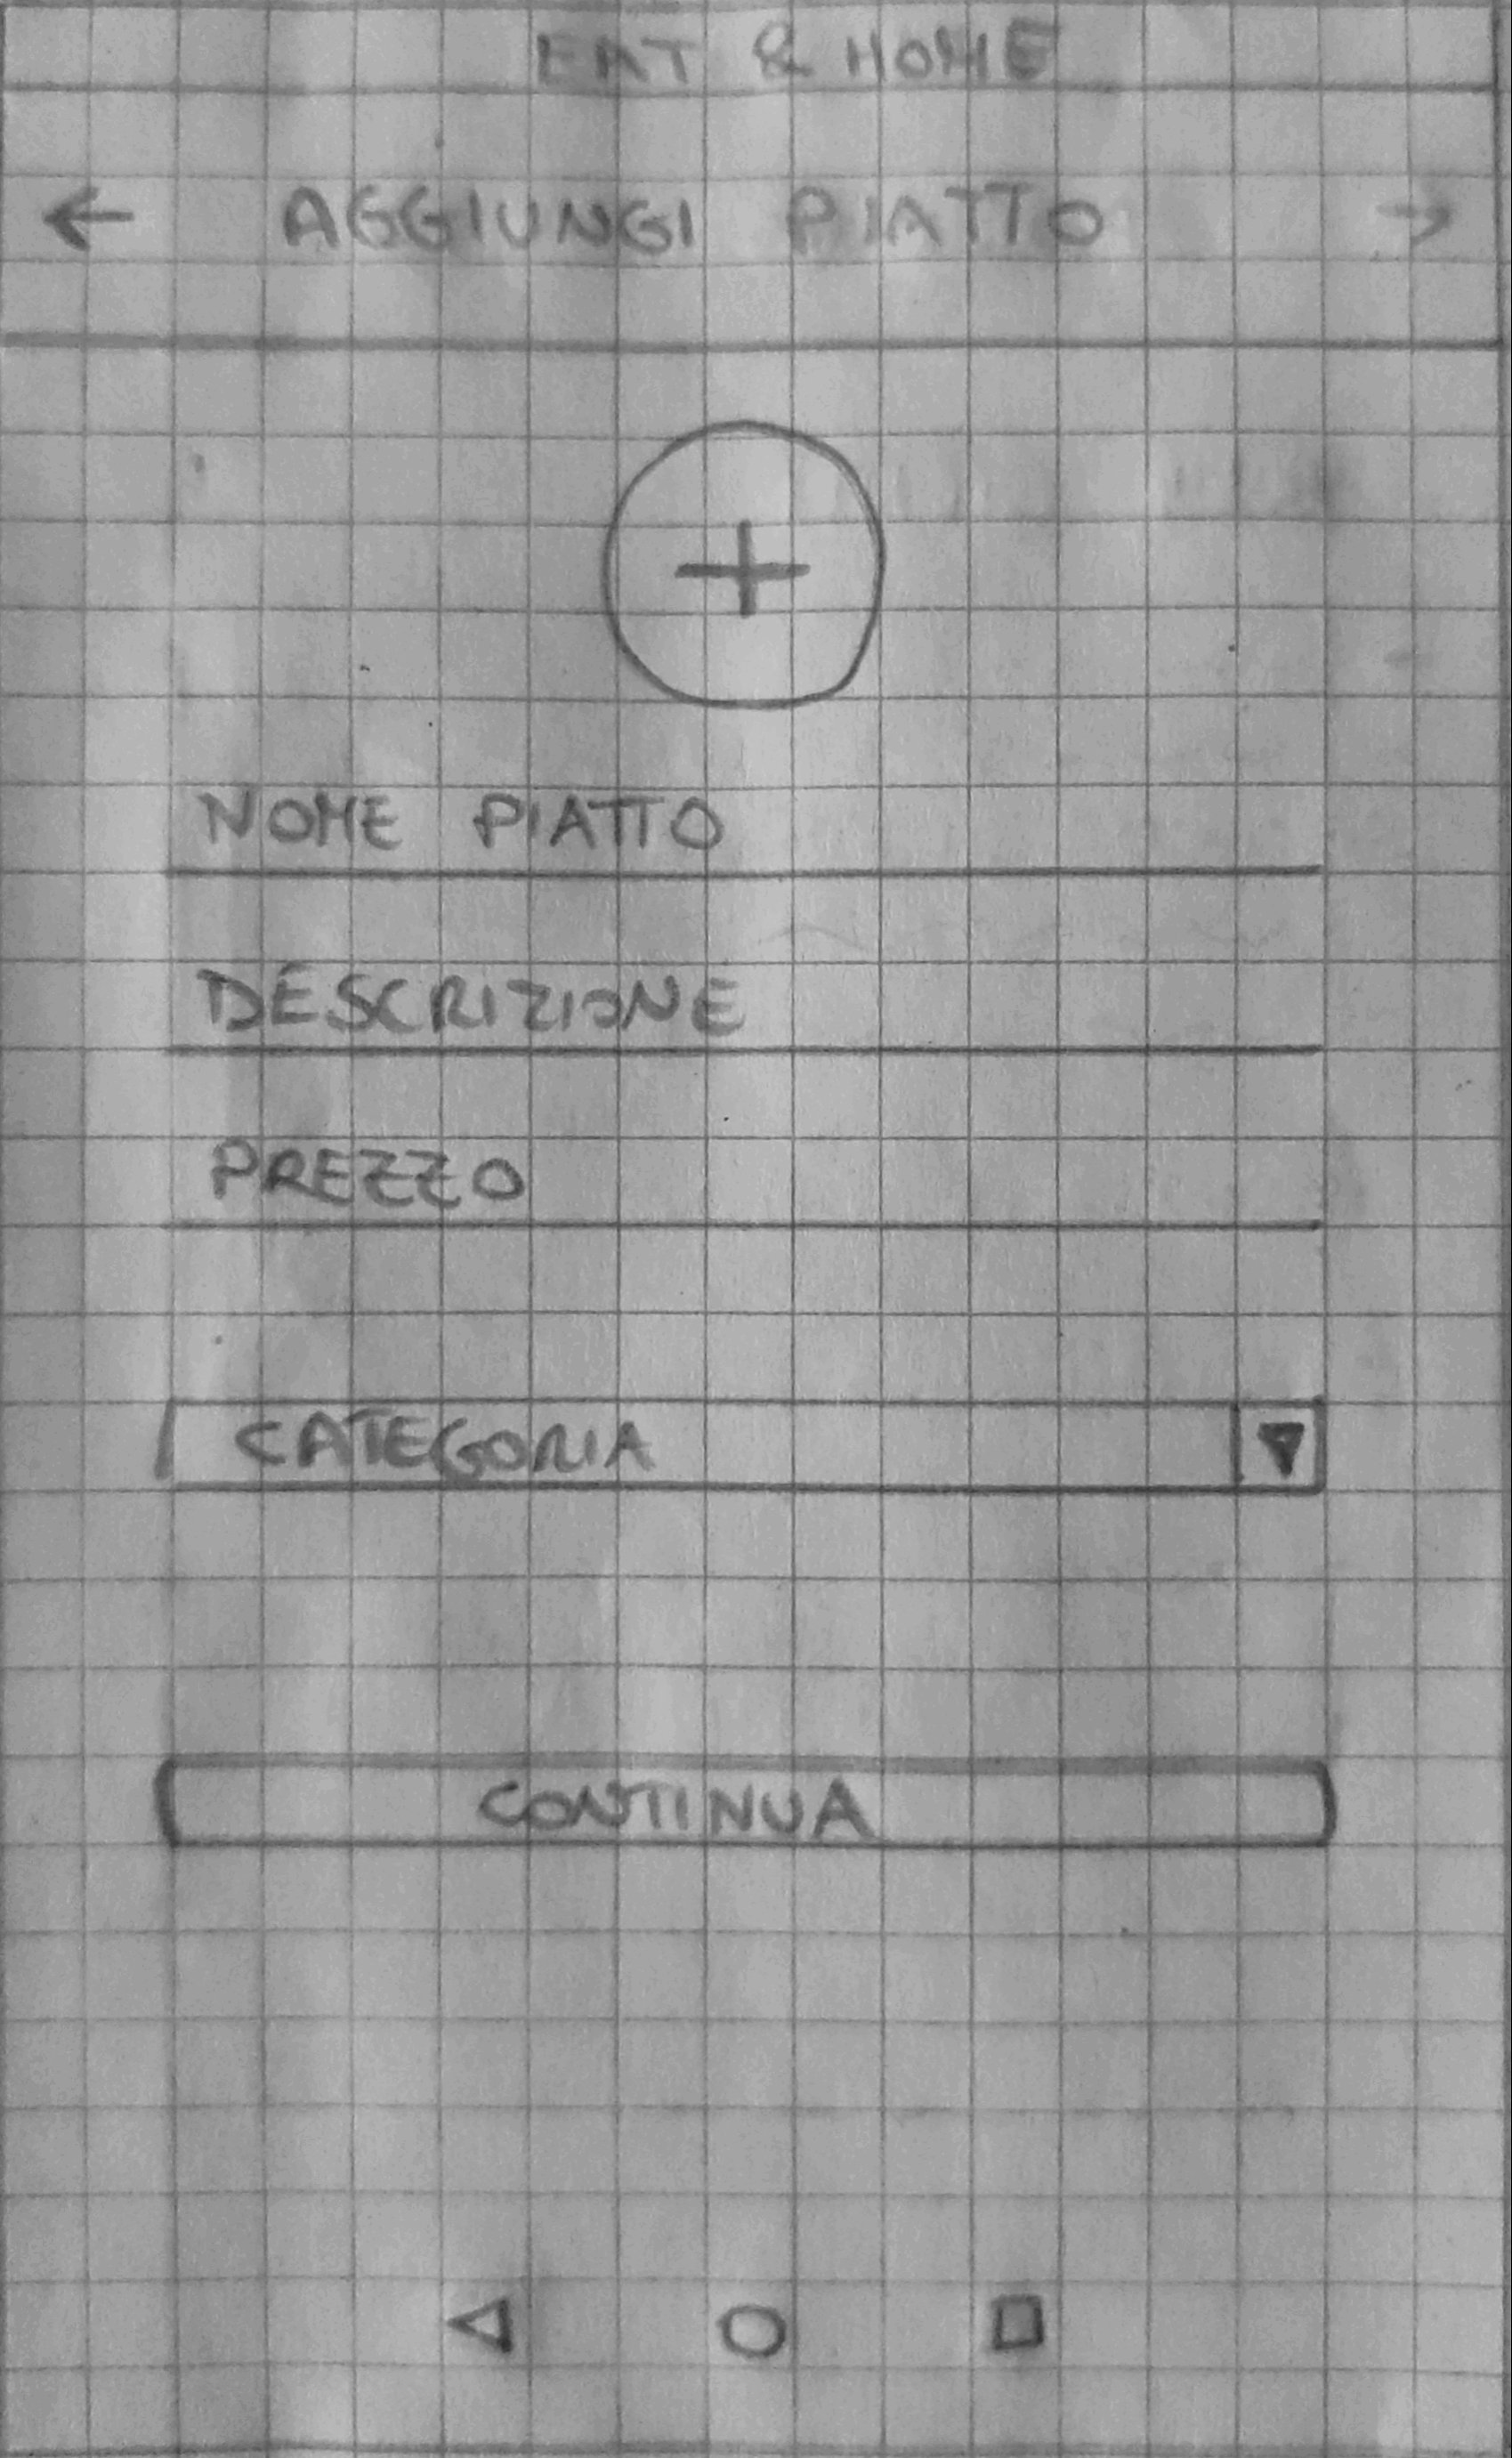 EAT & HOME
← AGGIUNGI PIATTO →
+
NOME PIATTO
DESCRIZIONE
PREZZO
CATEGORIA
CONTINUA